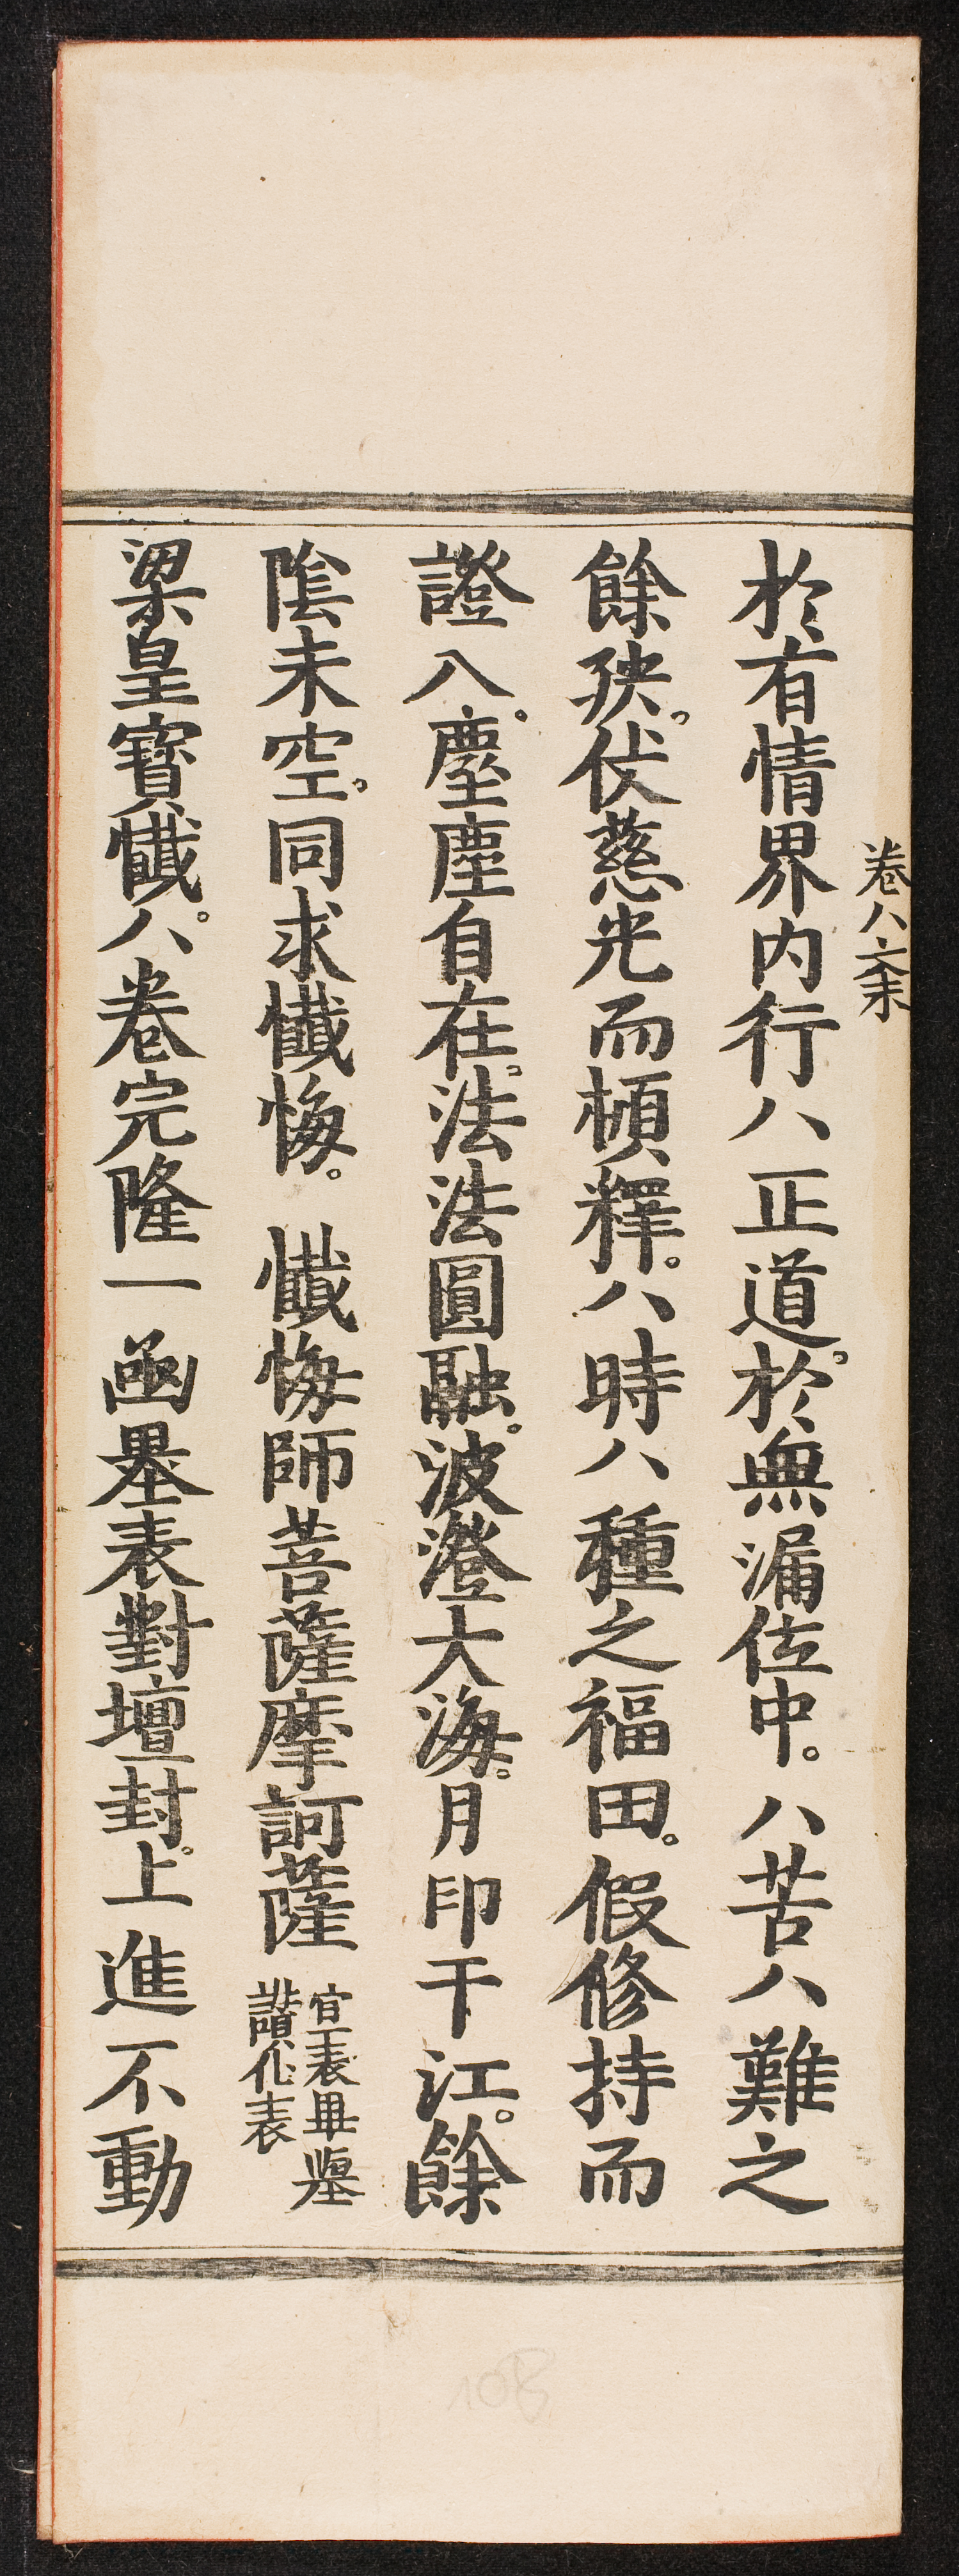 卷八 六末
於有情界内行八正道。於無漏位中。八苦八難之
餘殃。伏慈光而頓釋。八時八種之福田。假修持而
證入。塵塵自在。法法圓融。波澄大海。月印千江。餘
陰未空。同求懺悔。 懺悔師菩薩摩訶薩
宣表畢壇
讚化表
梁皇寶懺。八卷完隆一函墨表對壇封。上進不動
108